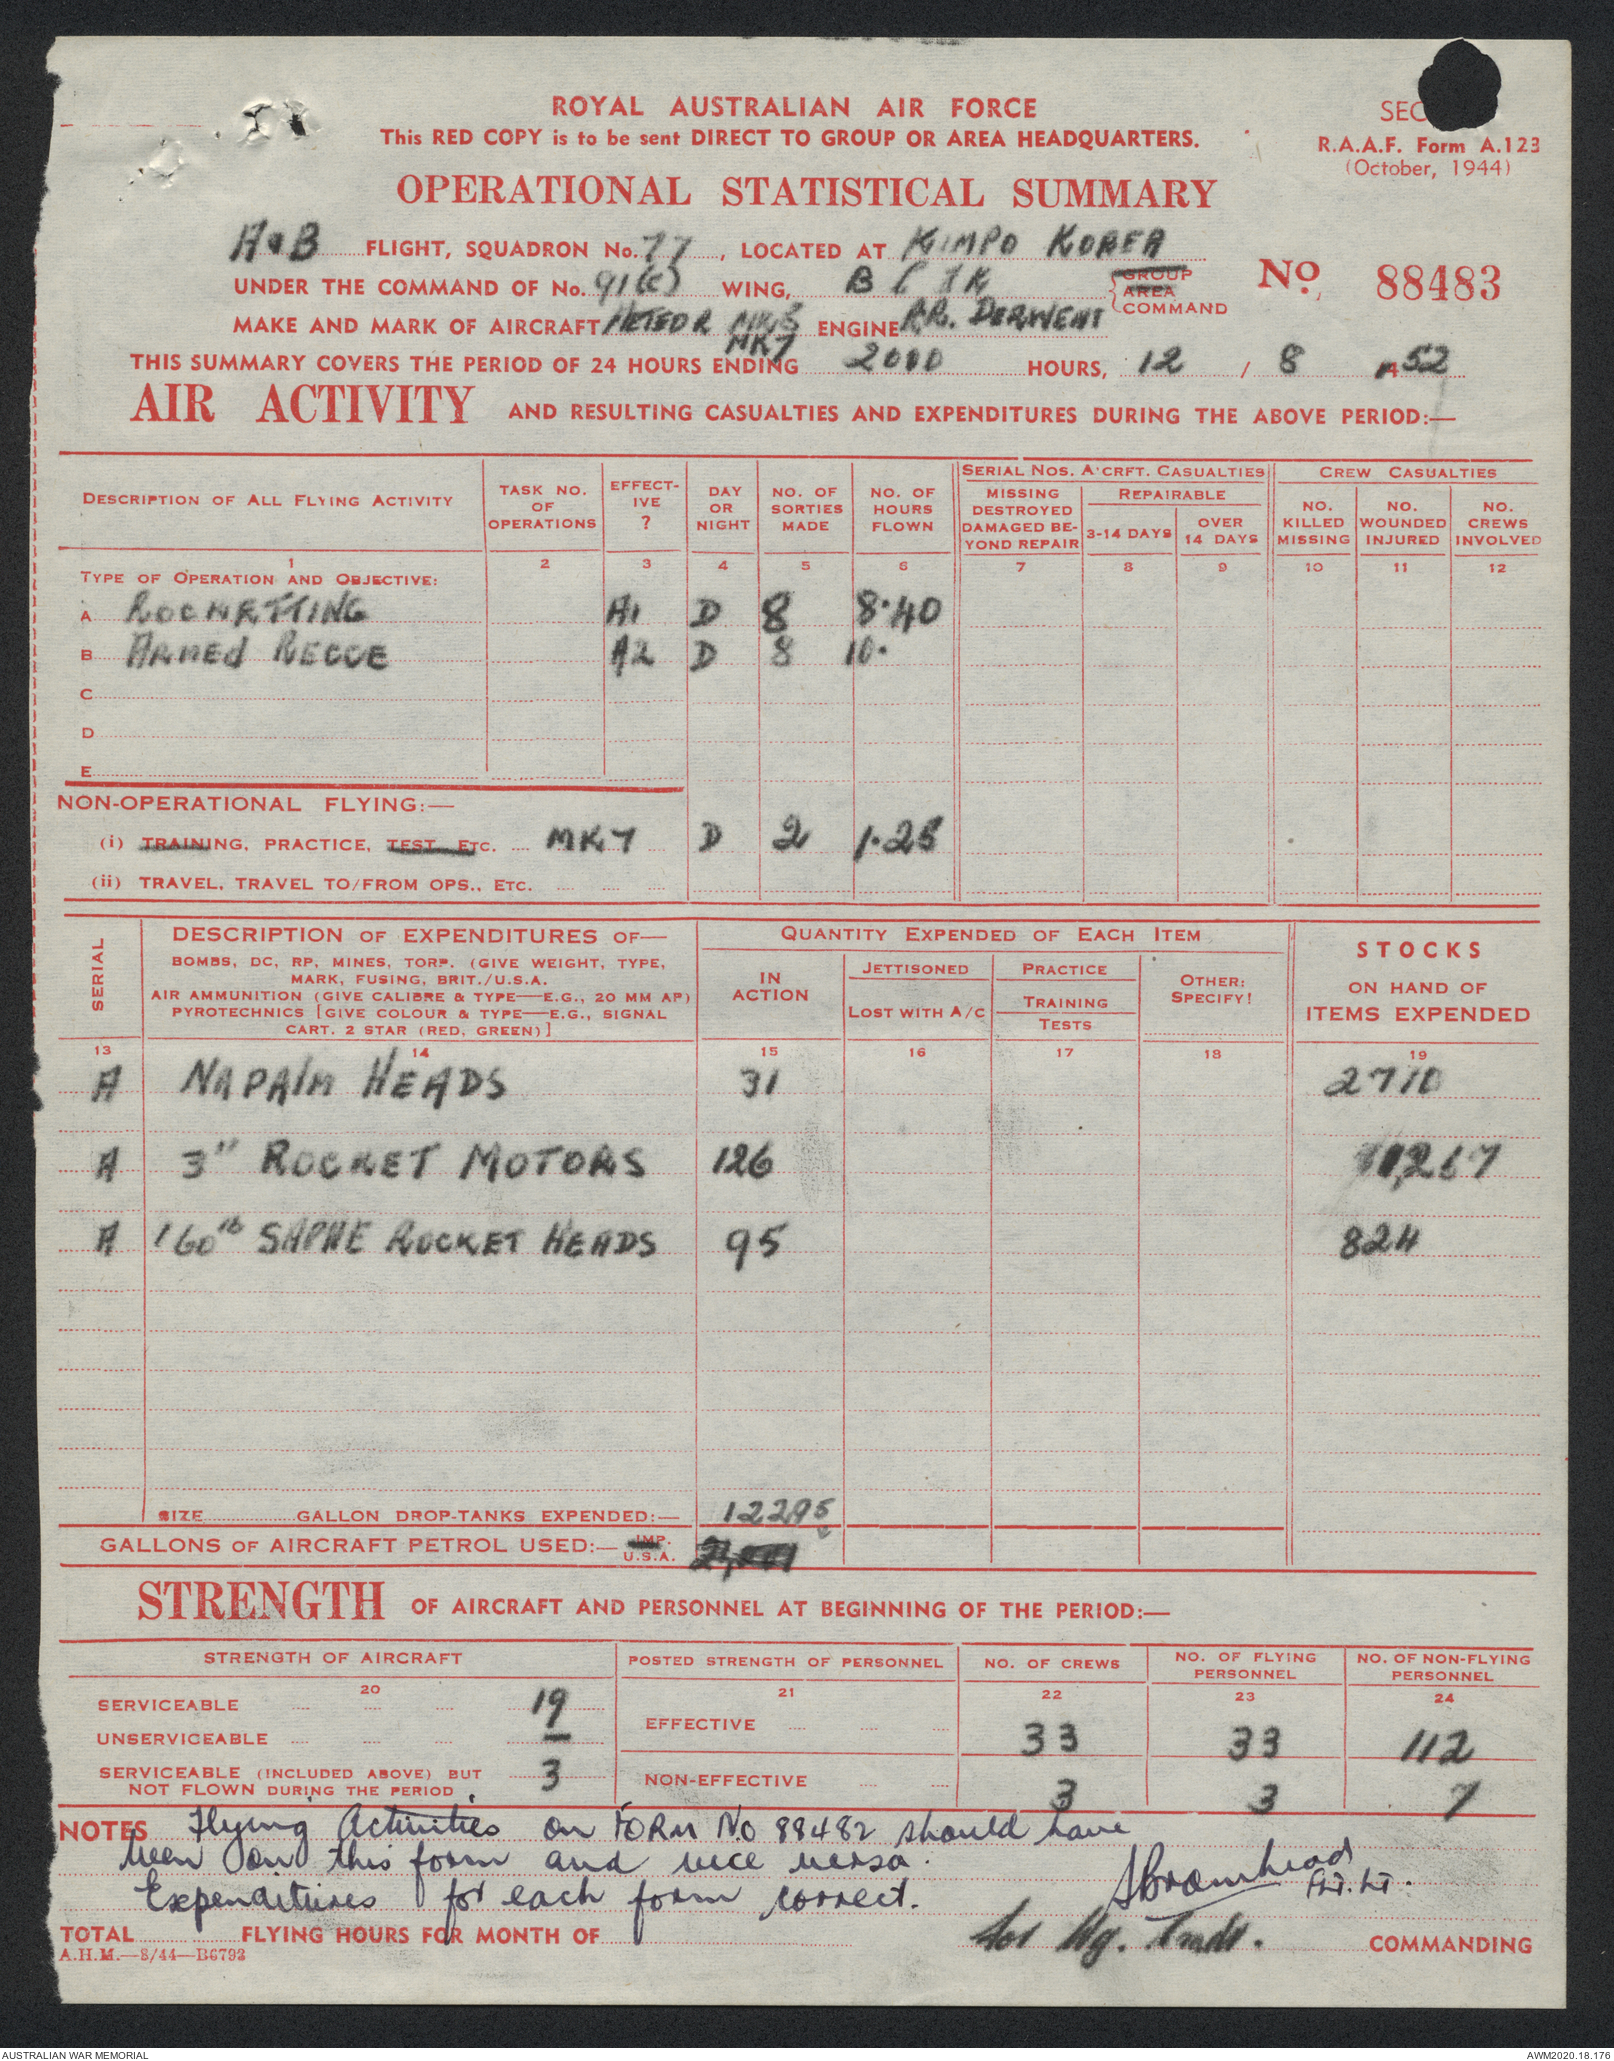 ROYAL AUSTRALIAN AIR FORCE
This RED COPY is to be sent DIRECT TO GROUP OR AREA HEADQUARTERS.
SEC
R.A.A.F. Form A.123
(October, 1944)
OPERATIONAL STATISTICAL SUMMARY
A & B FLIGHT, SQUADRON No. 77, LOCATED AT KIMPO KOREA
UNDER THE COMMAND OF No. 91(C) WING, B C I K GROUP AREA COMMAND
No. 88483
MAKE AND MARK OF AIRCRAFT METEOR MK8 MK7 ENGINE RR. DERWENT
THIS SUMMARY COVERS THE PERIOD OF 24 HOURS ENDING 2000 HOURS, 12 / 8 52
AIR ACTIVITY AND RESULTING CASUALTIES AND EXPENDITURES DURING THE ABOVE PERIOD:—
DESCRIPTION OF ALL FLYING ACTIVITY
TASK NO. OF OPERATIONS
EFFECTIVE ?
DAY OR NIGHT
NO. OF SORTIES MADE
NO. OF HOURS FLOWN
SERIAL NOS. A'CRFT. CASUALTIES
MISSING DESTROYED DAMAGED BEYOND REPAIR
REPAIRABLE
3-14 DAYS
OVER 14 DAYS
CREW CASUALTIES
NO. KILLED MISSING
NO. WOUNDED INJURED
NO. CREWS INVOLVED
1 2 3 4 5 6 7 8 9 10 11 12
TYPE OF OPERATION AND OBJECTIVE:
A ROCKETTING A1 D 8 8·40
B ARMED RECCE A2 D 8 10·
C
D
E
NON-OPERATIONAL FLYING:—
(i) TRAINING, PRACTICE, TEST ETC. .... MK7 D 2 1·25
(ii) TRAVEL, TRAVEL TO/FROM OPS., ETC. .... .... ....
SERIAL
DESCRIPTION OF EXPENDITURES OF—
BOMBS, DC, RP, MINES, TORP. (GIVE WEIGHT, TYPE,
MARK, FUSING, BRIT./U.S.A.
AIR AMMUNITION (GIVE CALIBRE & TYPE—E.G., 20 MM AP)
PYROTECHNICS [GIVE COLOUR & TYPE—E.G., SIGNAL
CART. 2 STAR (RED, GREEN)]
QUANTITY EXPENDED OF EACH ITEM
IN ACTION
JETTISONED
LOST WITH A/C
PRACTICE
TRAINING
TESTS
OTHER: SPECIFY!
STOCKS
ON HAND OF
ITEMS EXPENDED
13 14 15 16 17 18 19
A NAPALM HEADS 31 2710
A 3" ROCKET MOTORS 126 11,267
A 160lb SAPHE ROCKET HEADS 95 824
SIZE GALLON DROP-TANKS EXPENDED:— 12295
GALLONS OF AIRCRAFT PETROL USED:— IMP. U.S.A.
STRENGTH OF AIRCRAFT AND PERSONNEL AT BEGINNING OF THE PERIOD:—
STRENGTH OF AIRCRAFT
POSTED STRENGTH OF PERSONNEL
NO. OF CREWS
NO. OF FLYING PERSONNEL
NO. OF NON-FLYING PERSONNEL
20 21 22 23 24
SERVICEABLE .... .... .... 19
UNSERVICEABLE .... .... .... —
SERVICEABLE (INCLUDED ABOVE) BUT
NOT FLOWN DURING THE PERIOD 3
EFFECTIVE .... .... .... 33 33 112
NON-EFFECTIVE .... .... 3 3 7
NOTES Flying Activities on FORM No 88482 should have
been on this form and vice versa.
Expenditures for each form correct.
SBromhead FLT.LT.
for Wg. Cmdr. COMMANDING
TOTAL FLYING HOURS FOR MONTH OF
A.H.M.—8/44—B6792
AUSTRALIAN WAR MEMORIAL
AWM2020.18.176